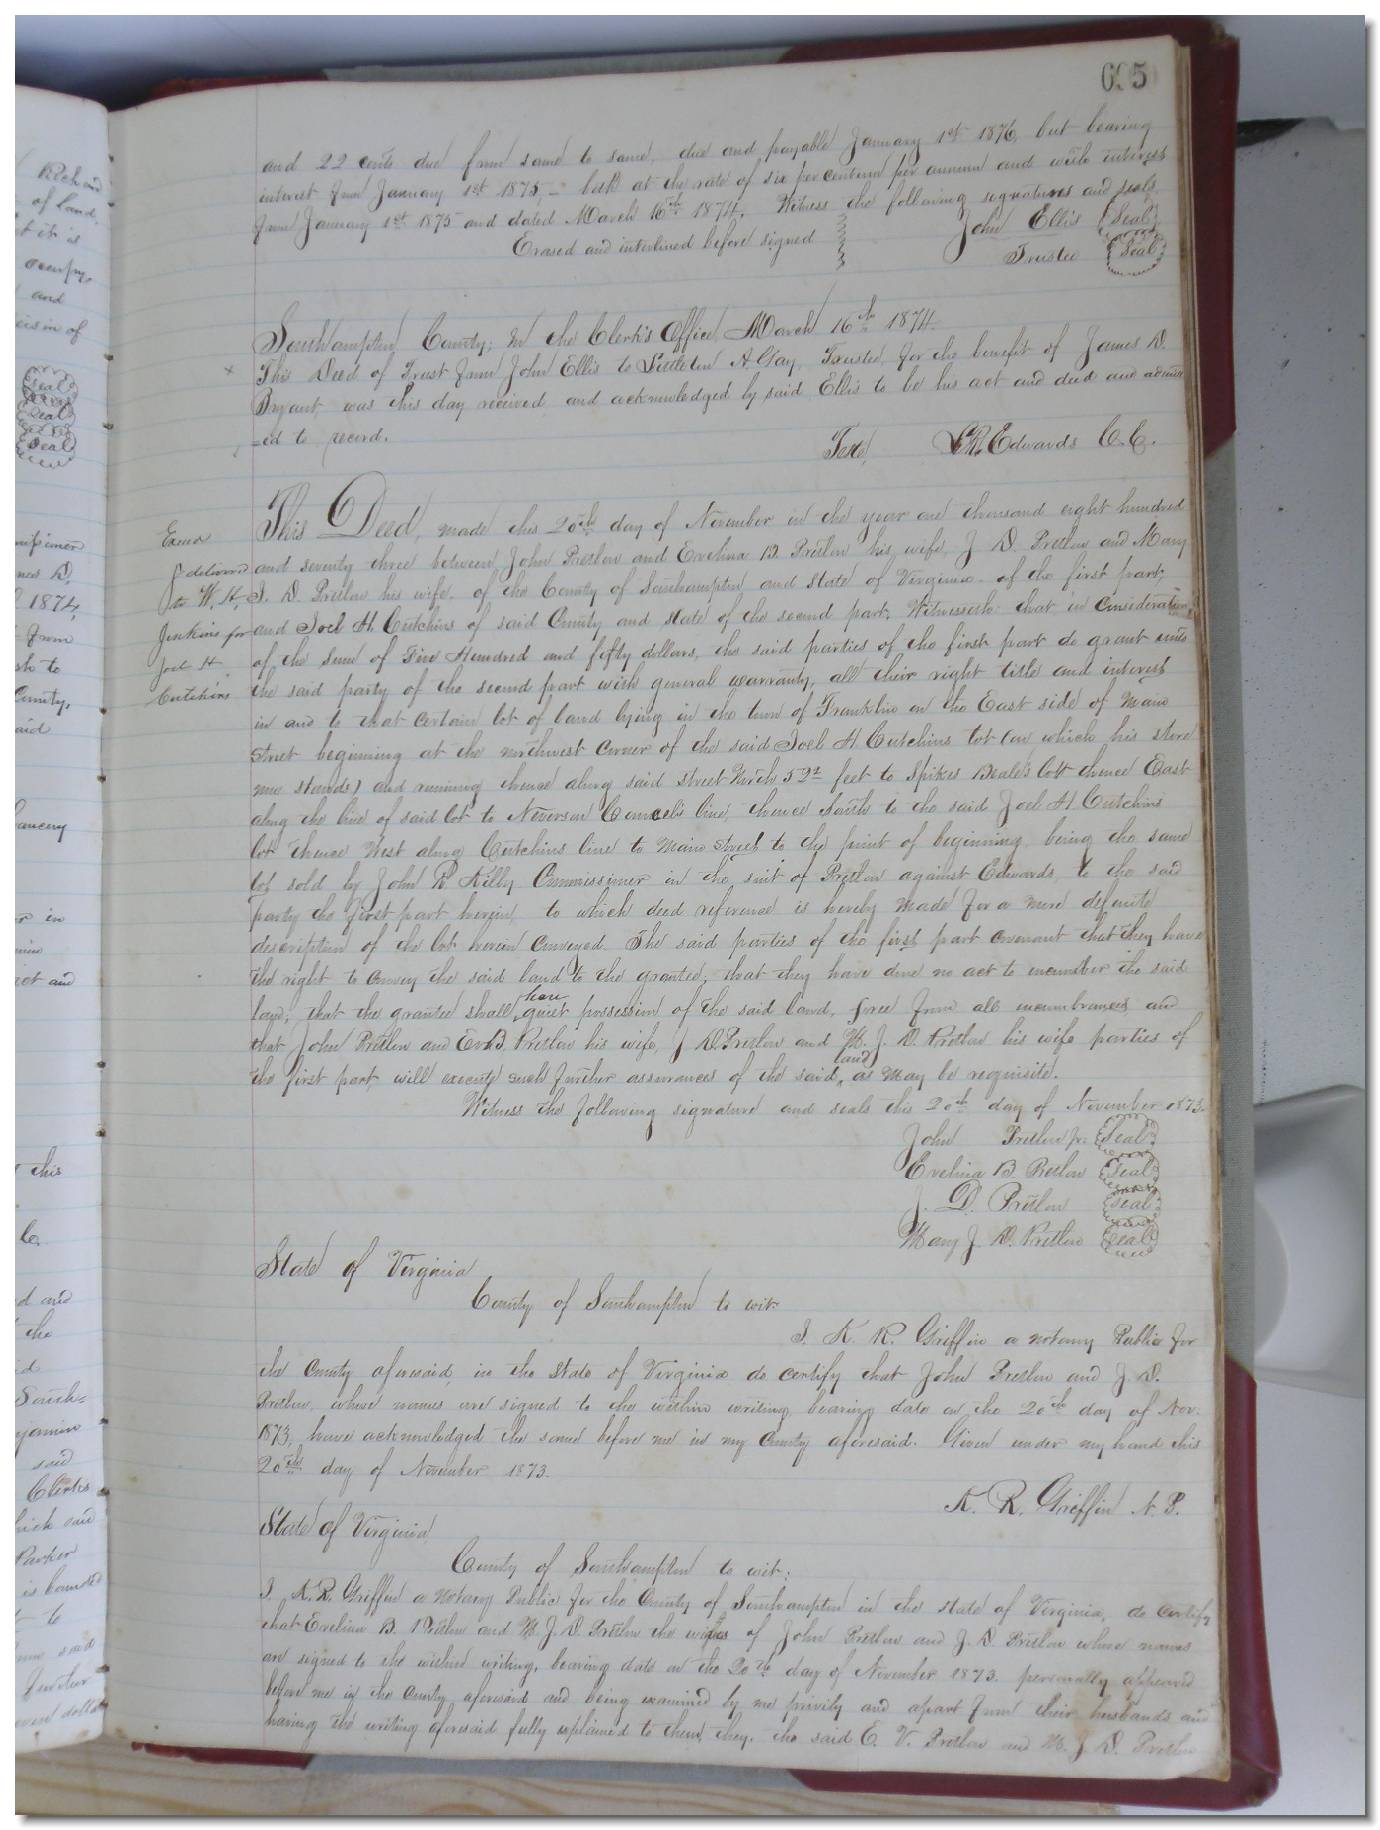 605
and 22 cents due from same to same, due and payable January 1st 1876, but bearing
interest from January 1st 1875, - both at the rate of six per centum per annum and with interest
from January 1st 1875 and dated March 16th 1874. Witness the following signatures and seals.
Erased and interlined before signed John Ellis Seal
Trustee Seal
Southampton County; In the Clerk's Office March 16th 1874.
This Deed of Trust from John Ellis to Littleton A. Trustee, for the benefit of James D.
Bryant was this day received, and acknowledged by said Ellis to be his act and deed and admitt
-ed to record.
Teste, L.R. Edwards C.C.
Examd
& delivered
to W. H.
Jenkins for
Joel H.
Cutchins
This Deed, made this 20th day of November in the year one thousand eight hundred
and seventy three between John Pretlow and Evelina B. Pretlow his wife, J D. Pretlow and Mary
J. D. Pretlow his wife, of the County of Southampton and State of Virginia of the first part,
and Joel H. Cutchins of said County and State of the second part, Witnesseth: that in consideration
of the Sum of Hundred and fifty dollars, the said parties of the first part do grant unto
the said party of the second part with general warranty, all their right title and interest
in and to that certain lot of land lying in the town of Franklin on the East side of Main
Street beginning at the northwest corner of the said Joel H. Cutchins lot (on which his store
now stands) and running thence along said street North feet to Spikes Beale's lot thence East
along the line of said lot to line, thence South to the said Joel H. Cutchins
lot thence West along Cutchins line to Main Street to the point of beginning, being the same
lot sold by John R Kilby Commissioner in the suit of Pretlow against Edwards, to the said
party the first part herein, to which deed reference is hereby made for a more definite
description of the lot herein conveyed. The said parties of the first part covenant that they have
the right to convey the said land to the grantee; that they have done no act to incumber the said
land; that the grantee shall have quiet possession of the said land, free from all incumbrances, and
that John Pretlow and Ev B. Pretlow his wife, J D. Pretlow and M. J. D. Pretlow his wife parties of
the first part, will execute such further assurances of the said land as may be requisite.
Witness the following signature and seals this 20th day of November 1873.
John Pretlow jr. Seal
Evelina B Pretlow Seal
J. D. Pretlow Seal
Mary J. D. Pretlow Seal
State of Virginia
County of Southampton to wit.
I. K. R. Griffin a notary Public for
the County aforesaid, in the State of Virginia do certify that John Pretlow and J. D.
Pretlow, whose names are signed to the within writing, bearing date on the 20th day of Nov.
1873, have acknowledged the same before me in my County aforesaid. Given under my hand this
20th day of November 1873.
K. R. Griffin N. P.
State of Virginia
County of Southampton to wit;
I. K.R. Griffin a Notary Public for the County of Southampton in the State of Virginia, do certify
that Evelina B. Pretlow and M. J. D. Pretlow the wives of John Pretlow and J. D. Pretlow whose names
are signed to the within writing, bearing date on the 20th day of November 1873. personally appeared
before me in the County aforesaid and being examined by me privily and apart from their husbands and
having the writing aforesaid fully explained to them, they, the said E. V. Pretlow and M. J D. Pretlow